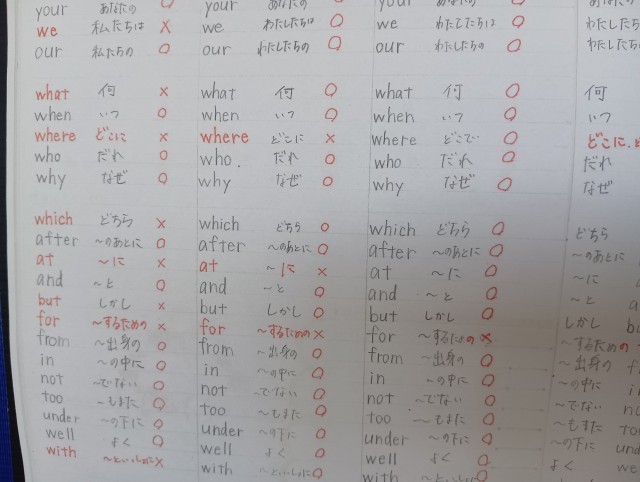 your あなたの ○ your あなたの ○ your あなたの ○
we 私たちは × we わたしたちは ○ we わたしたちは ○ わたしたち
our 私たちの ○ our わたしたちの ○ our わたしたちの ○ わたしたち
what 何 × what 何 ○ what 何 ○ 何
when いつ ○ when いつ ○ when いつ ○ いつ
where どこに × where どこに × where どこで ○ どこに、
who だれ ○ who. だれ ○ who だれ ○ だれ
why なぜ ○ why なぜ ○ why なぜ ○ なぜ
which どちら × which どちら ○ which どちら ○ どちら
after 〜のあとに ○ after 〜のあとに ○ after 〜のあとに ○ 〜のあとに
at 〜に × at 〜に × at 〜に ○ 〜に
and 〜と ○ and 〜と ○ and 〜と ○ 〜と
but しかし × but しかし ○ but しかし ○ しかし
for 〜するための × for 〜するための × for 〜するための × 〜するための
from 〜出身の ○ from 〜出身の ○ from 〜出身の ○ 〜出身の
in 〜の中に ○ in 〜の中に ○ in 〜の中に ○ 〜の中に
not 〜でない ○ not 〜でない ○ not 〜でない ○ 〜でない
too 〜もまた ○ too 〜もまた ○ too 〜もまた ○ 〜もまた
under 〜の下に ○ under 〜の下に ○ under 〜の下に ○ 〜の下に
well よく ○ well よく ○ well よく ○ よく
with 〜といっしょに × with 〜といっしょに ○ with 〜といっしょに ○